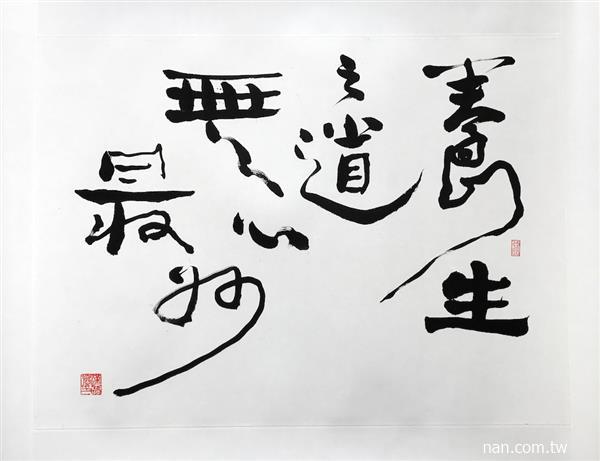 養生
之道
無心
最妙
nan.com.tw